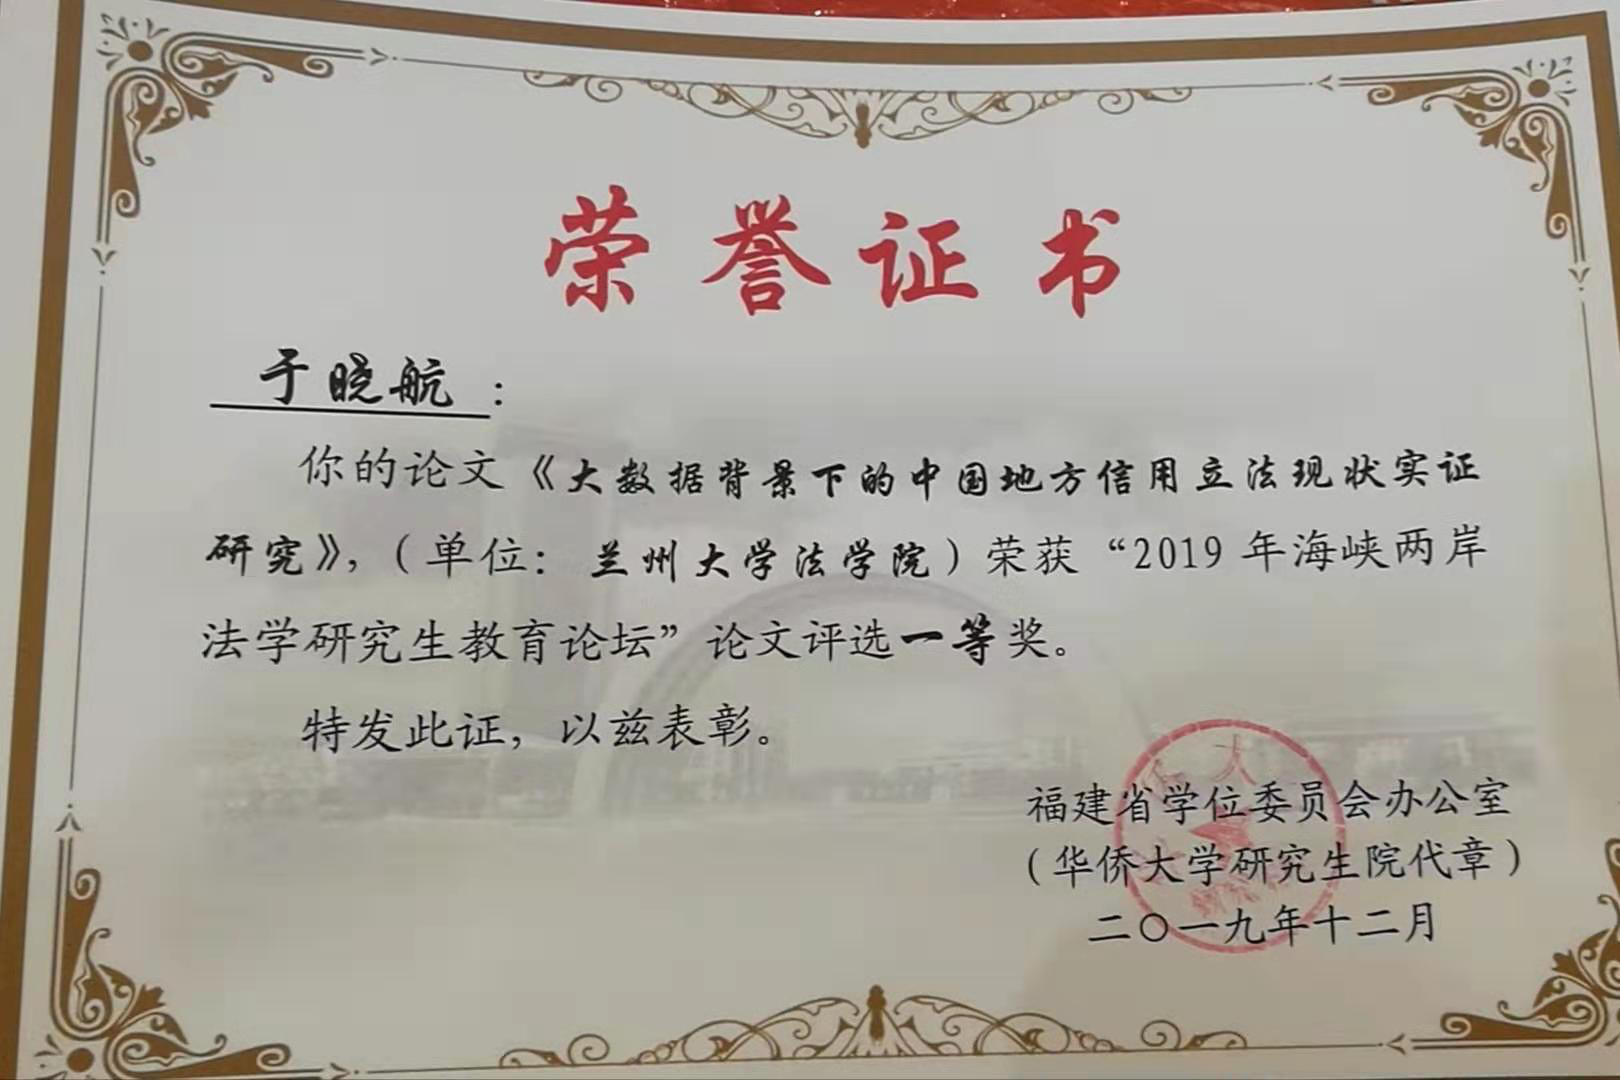 荣誉证书
于晓航：
你的论文《大数据背景下的中国地方信用立法现状实证
研究》，（单位：兰州大学法学院）荣获“2019年海峡两岸
法学研究生教育论坛”论文评选一等奖。
特发此证，以兹表彰。
福建省学位委员会办公室
（华侨大学研究生院代章）
二〇一九年十二月